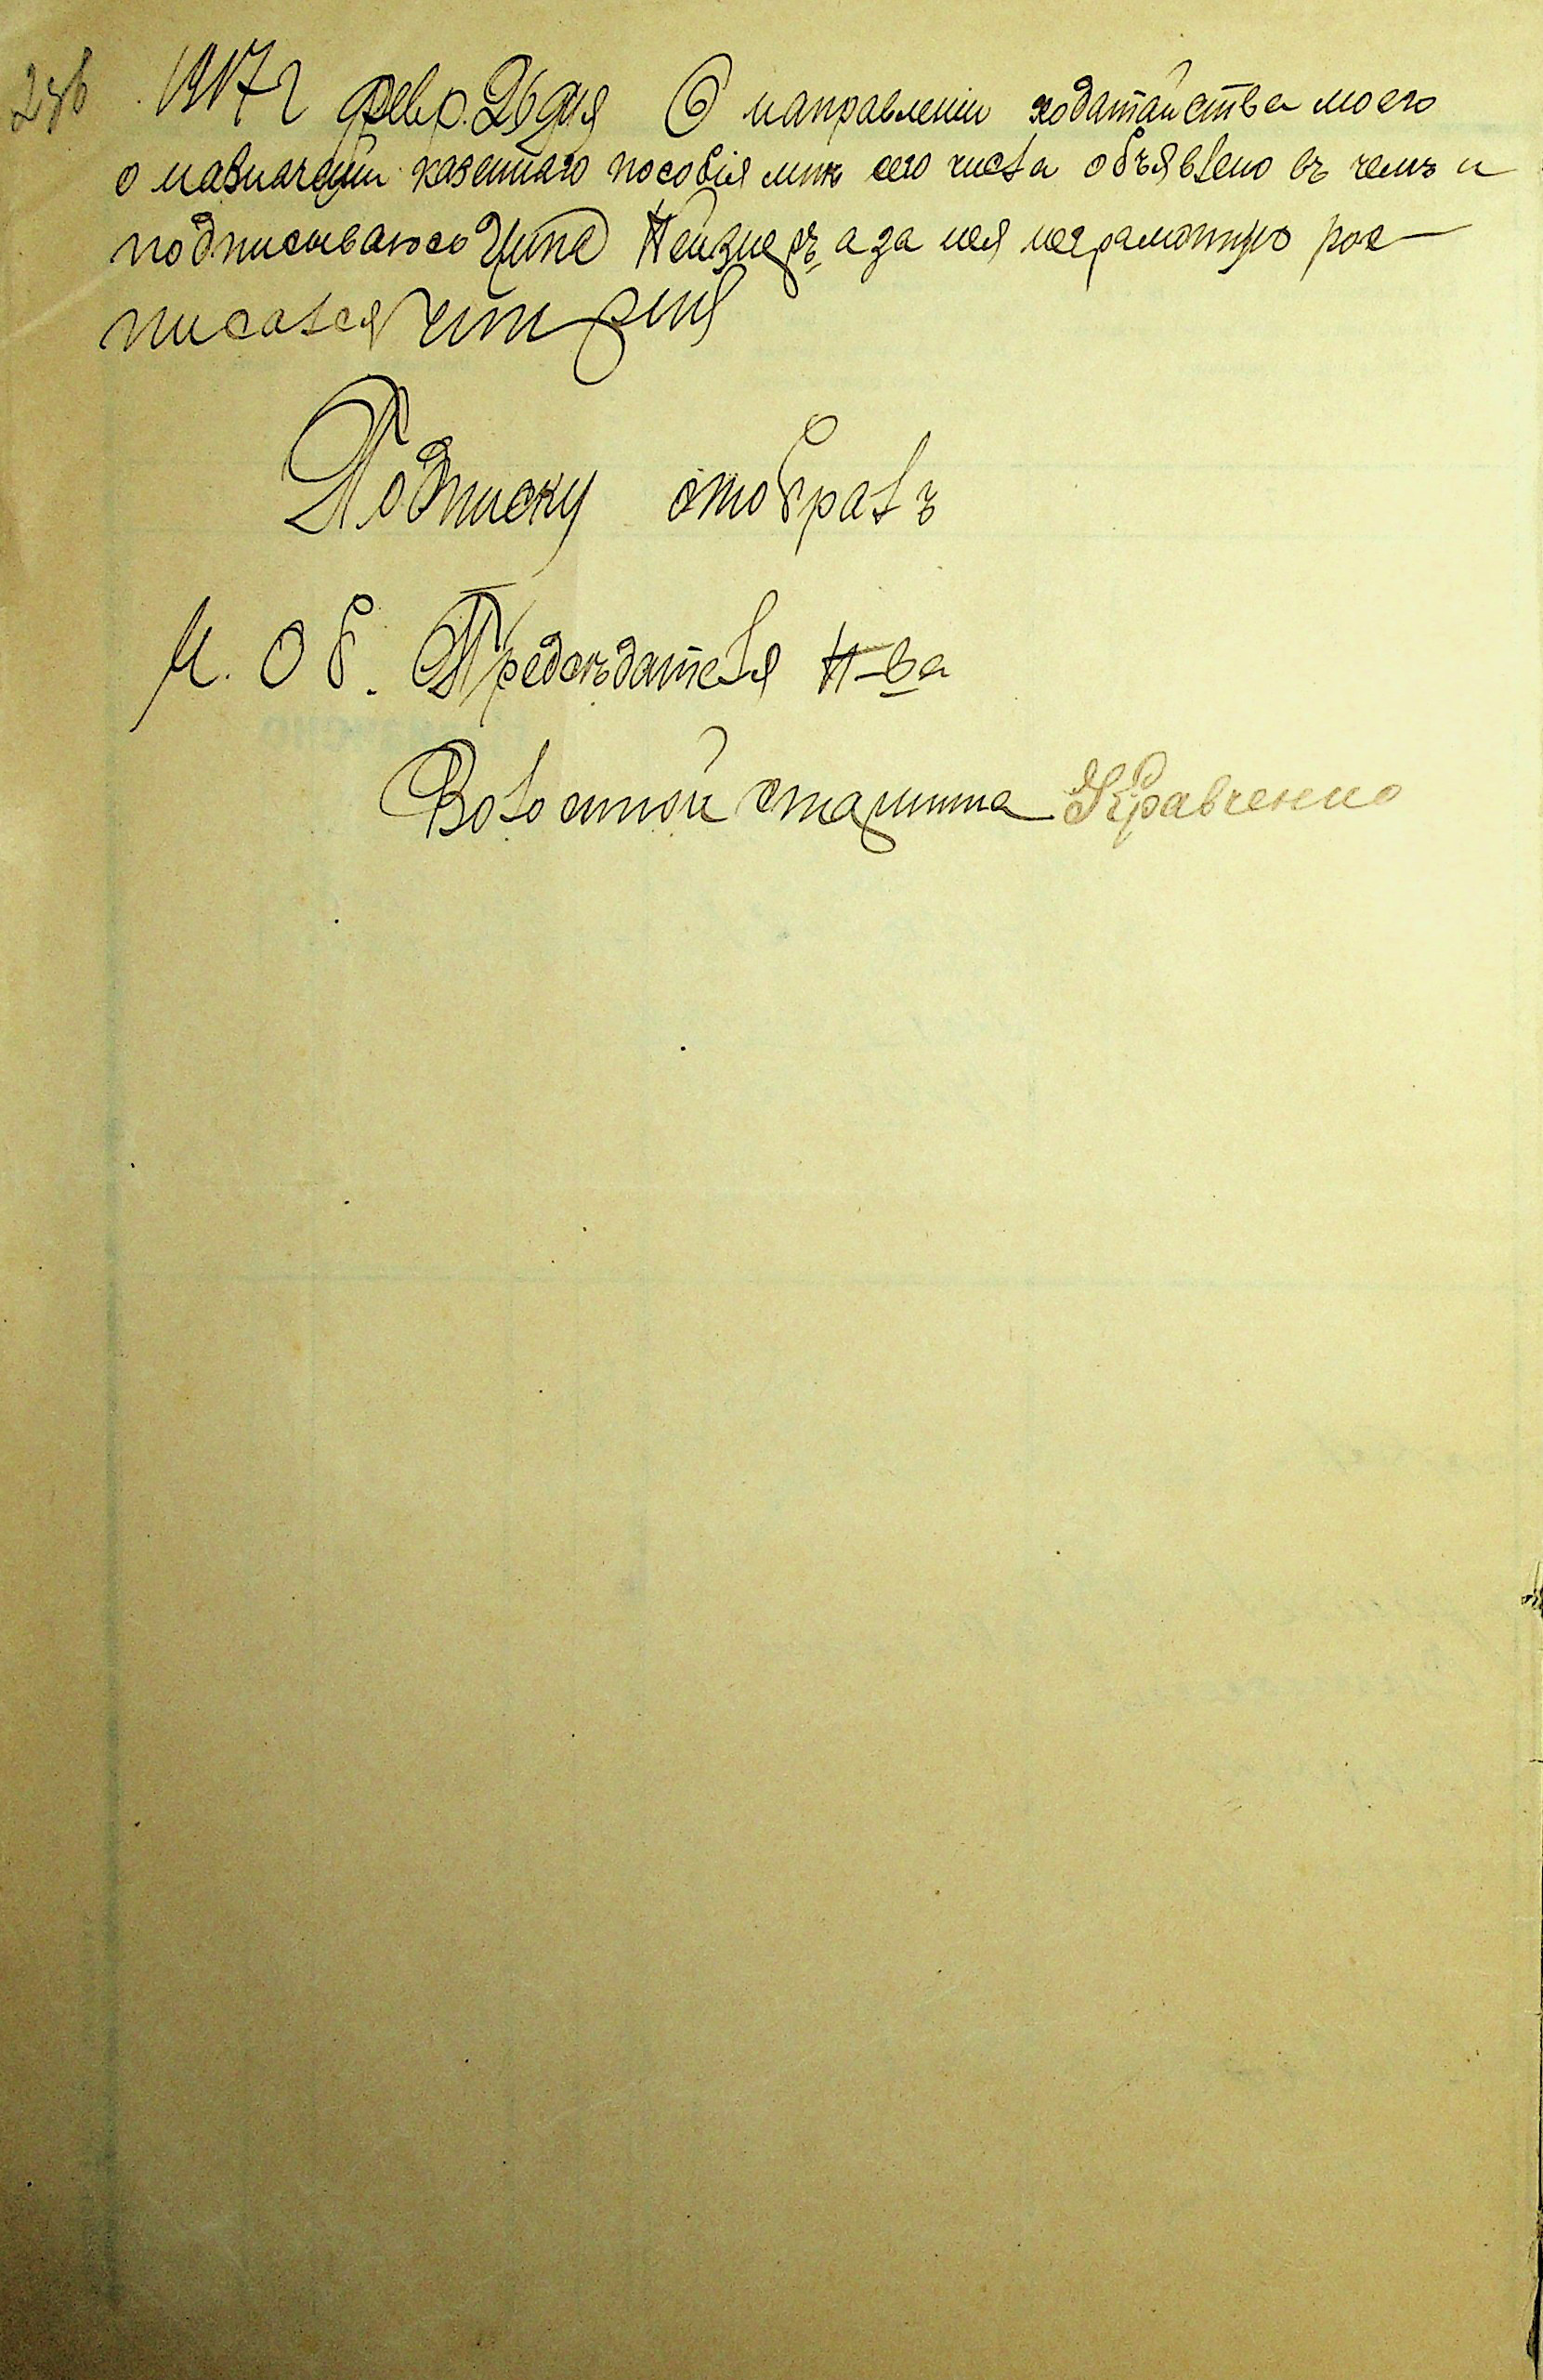 1917 г февр. 26 дня О направленіи ходатайства моего
о назначеніи казеннаго пособія мнѣ сего числа объявлено въ чемъ и
подписываюсь а за нея неграмотную рос-
писался
Подписку отобралъ
И. Об. Предсѣдателя П-ва
Волостной старшина Кравченко